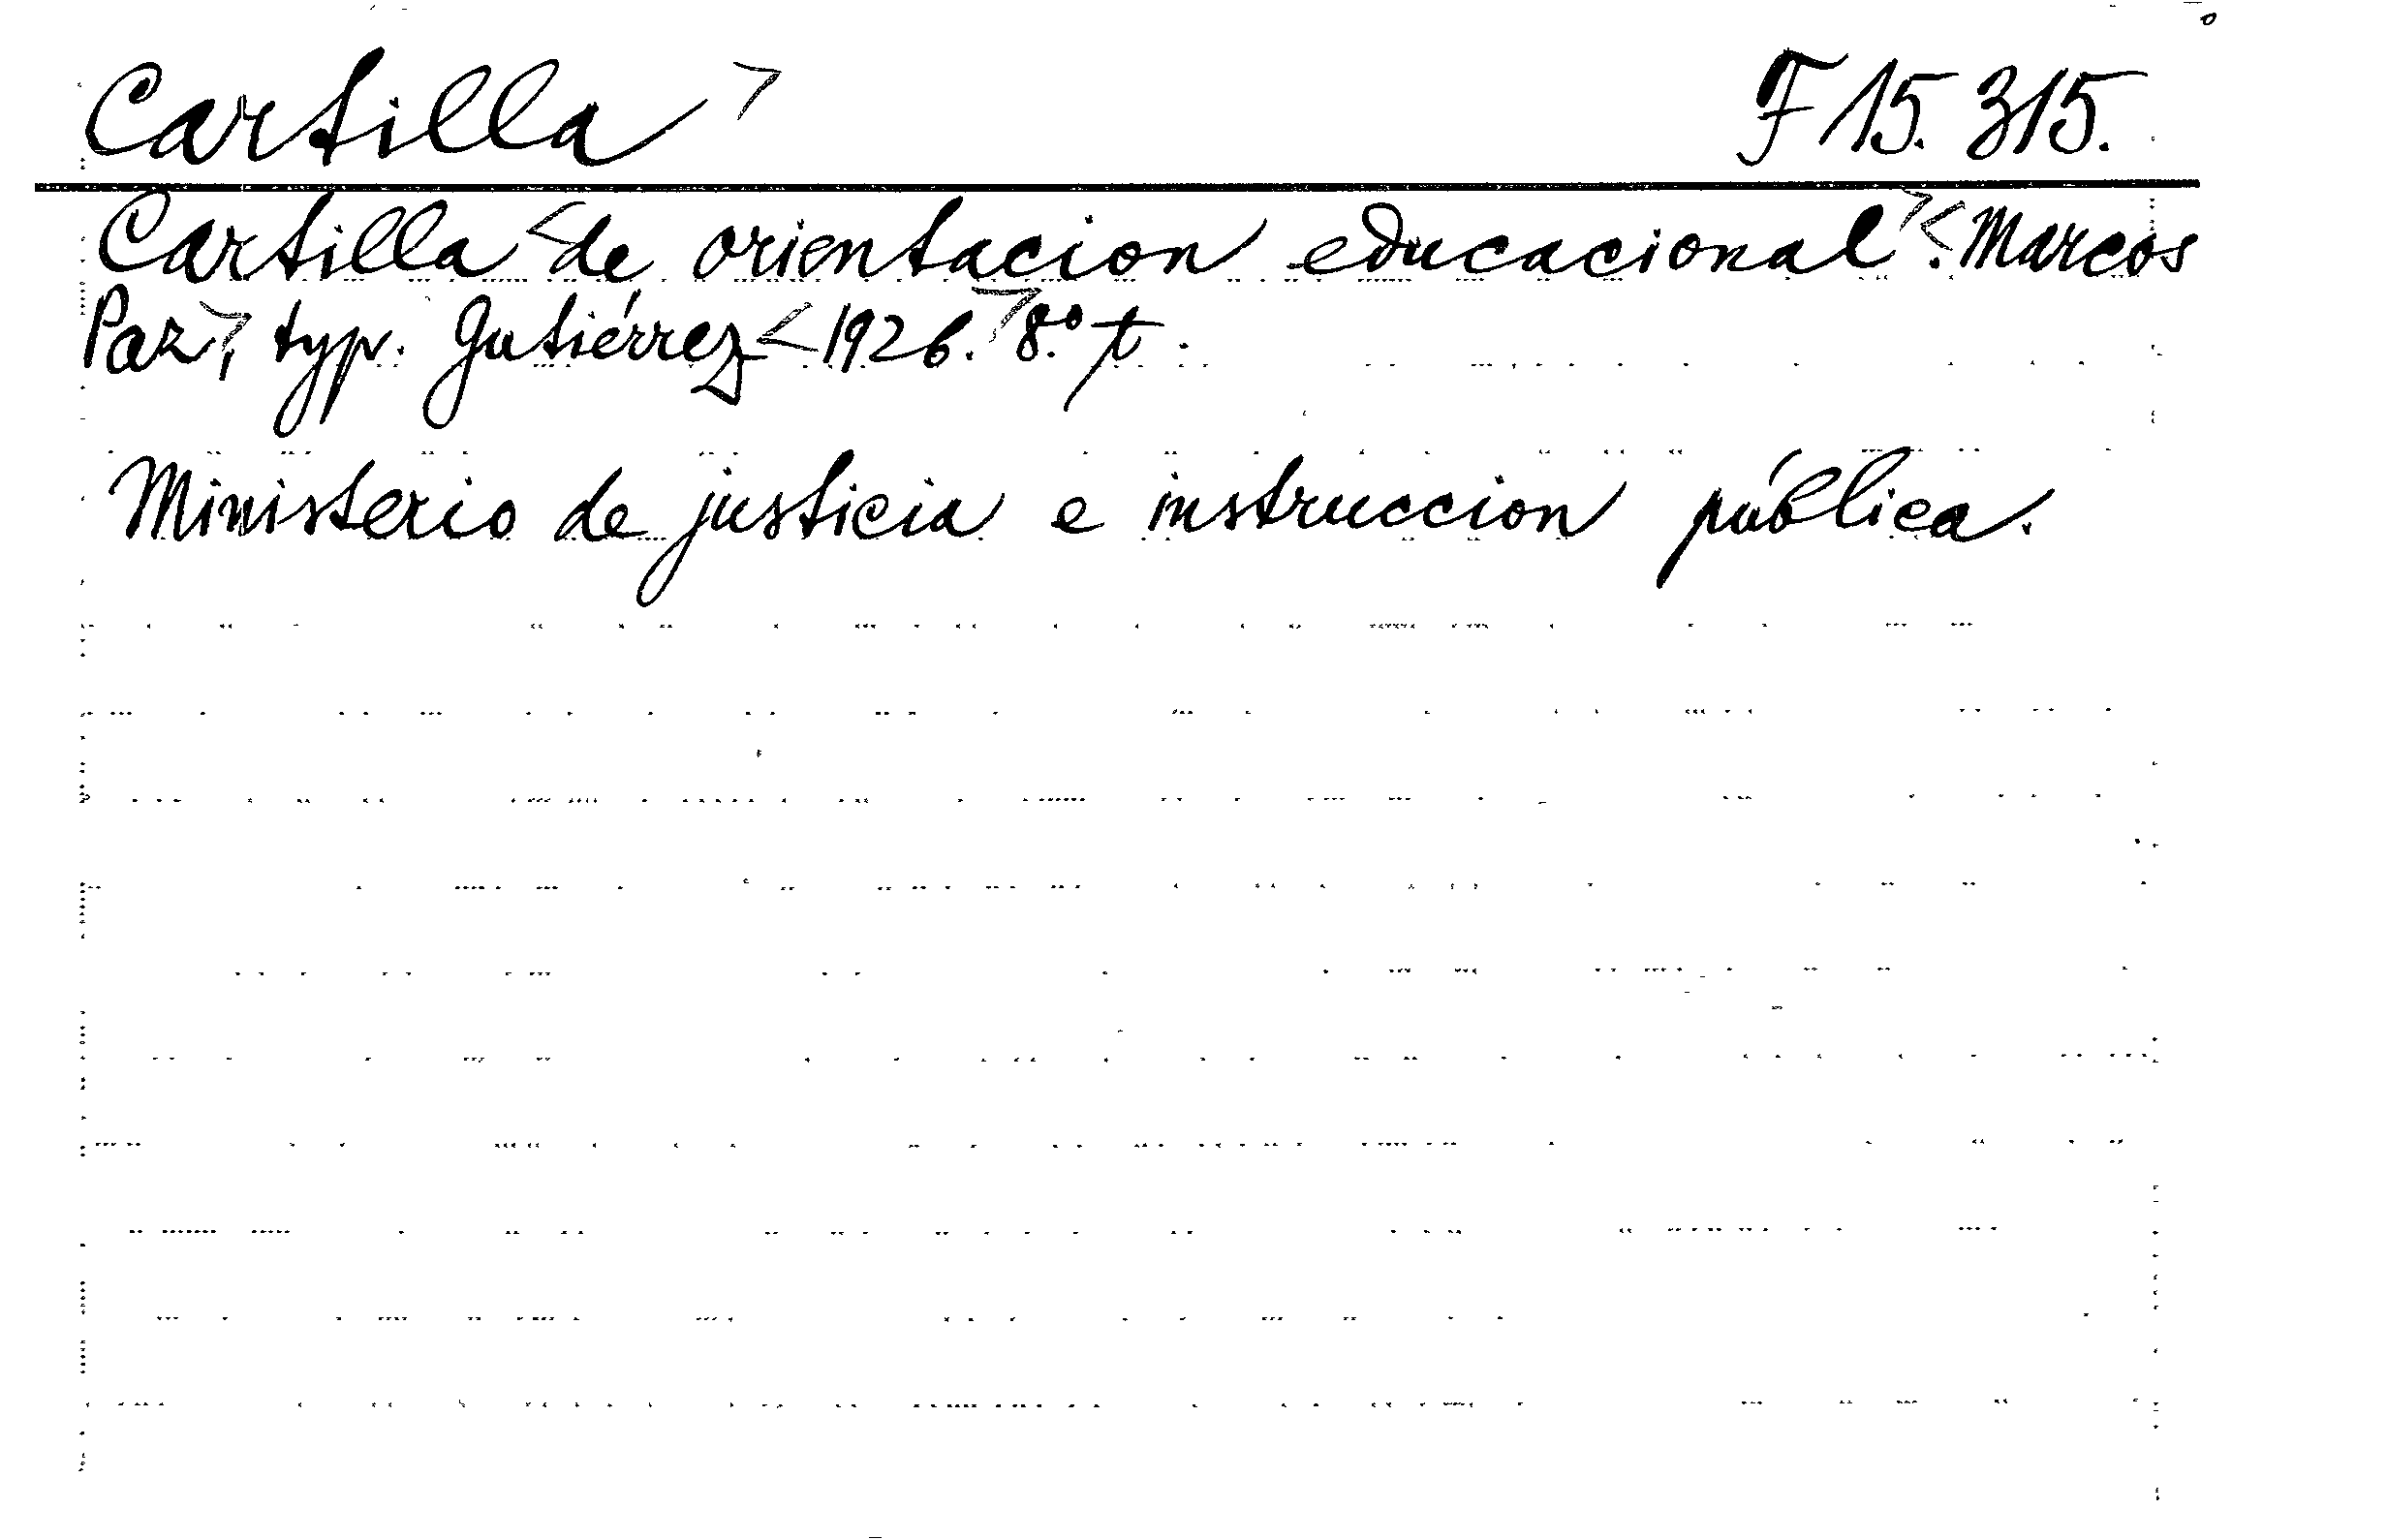 Cartilla > F 15.315.
Cartilla < de orientacion educacional > <. Marcos
Paz >, typ. Gutiérrez < 1926. > 8.° t.
Ministerio de justicia e instruccion pública.